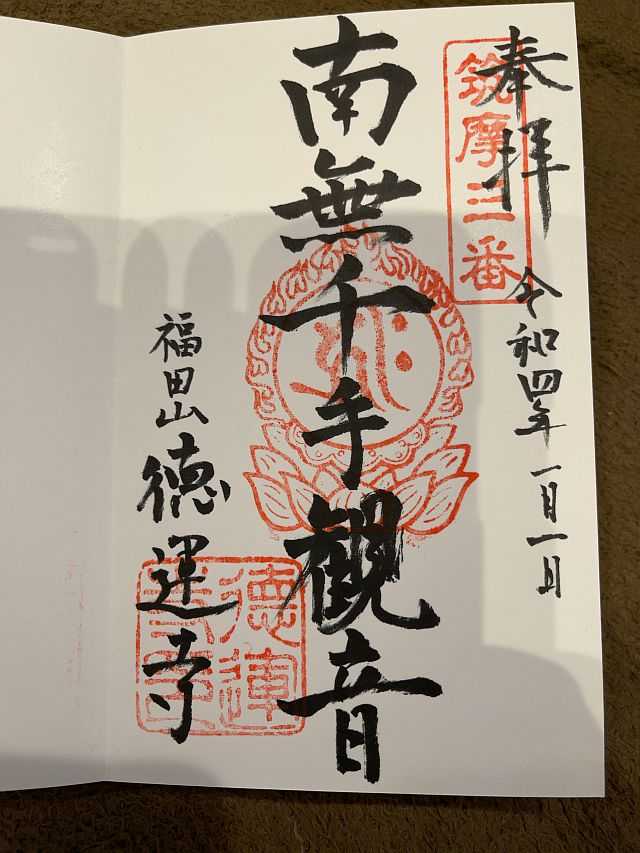 奉拝
筑摩三番
令和四年一月一日
南無千手観音
福田山
徳運寺